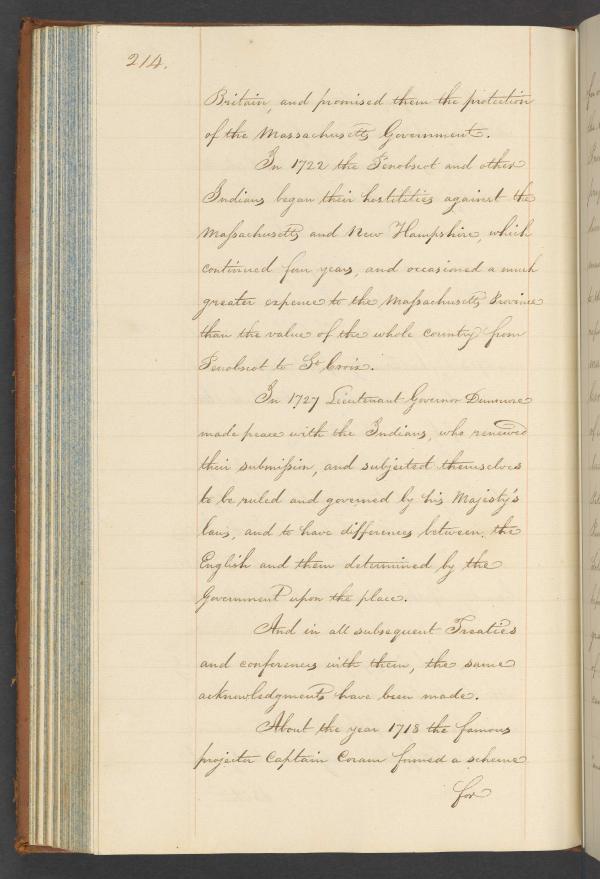 214.
Britain, and promised them the protection
of the Massachusetts Government.
In 1722 the Penobscot and other
Indians began their hostilities against the
Massachusetts and New Hampshire, which
continued four years, and occasioned a much
greater expence to the Massachusetts Province
than the value of the whole country from
Penobscot to St Croix.
In 1727 Lieutenant Governor Dummore
made peace with the Indians, who renewed
their submission, and subjected themselves
to be ruled and governed by his Majesty's
laws, and to have differences between the
English and them determined by the
Government upon the place.
And in all subsequent Treaties
and conferences with them, the same
acknowledgments have been made.
About the year 1718 the famous
projector Captain Coram formed a scheme
for